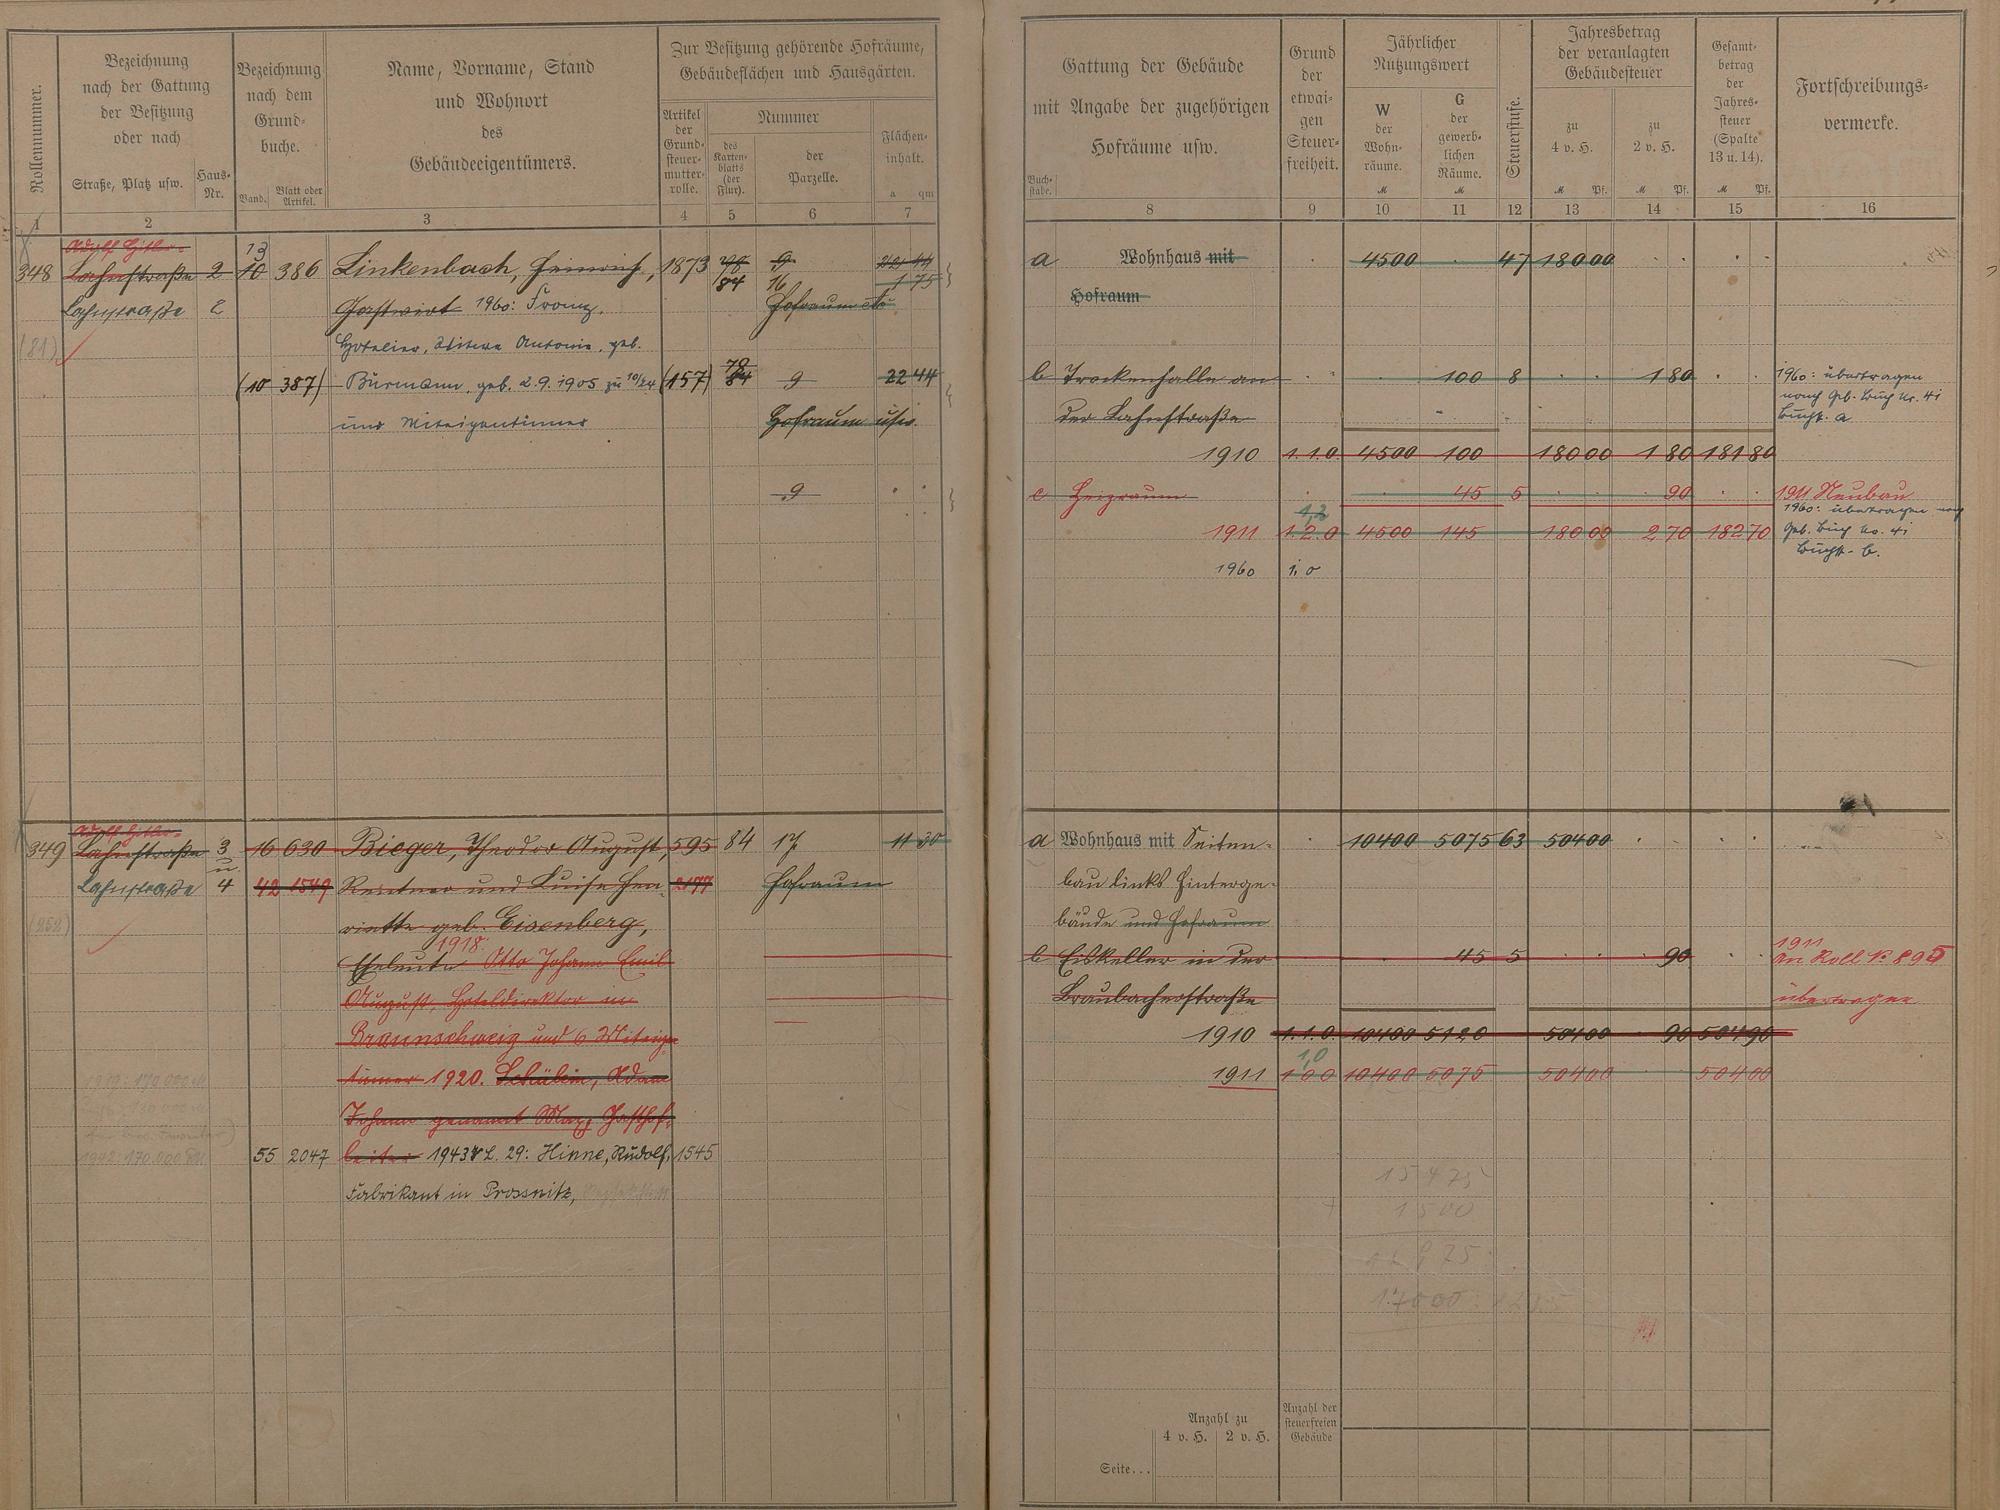 Rollennummer.
Bezeichnung
nach der Gattung
der Besitzung
oder nach
Straße, Platz usw.
Haus-
Nr.
Bezeichnung
nach dem
Grund-
buche.
Band.
Blatt oder
Artikel.
Name, Vorname, Stand
und Wohnort
des
Gebäudeeigentümers.
Zur Besitzung gehörende Hofräume,
Gebäudeflächen und Hausgärten.
Artikel
der
Grund-
steuer-
mutter-
rolle.
Nummer
des
Karten-
blatts
(der
Flur).
der
Parzelle.
Flächen-
inhalt.
a qm
1 2 3 4 5 6 7
Adolf Hitler-
13
348 Lahnstraße 2 10 386 Linkenbach, Heinrich, 1873 78 9 22 44
84 16 1 75
Lahnstraße 2 Gastwirt 1960: Franz, Hofraum etc
(81) Hotelier, Witwe Antonie, geb.
78
(10 387) Bürmann, geb. 2.9.1905 zu 10/24 (157) 84 9 22 44
und Miteigentümer Hofraum usw.
9
Adolf Hitler-
349 Lahnstraße 3 16 630 Bieger, Theodor August, 595 84 17 11 30
u.
Lahnstraße 4 42 1549 Rentner und Luise Hen- 2177 Hofraum
(252) riette geb. Eisenberg,
1918.
Eheleute Otto Johann Emil
August, Hoteldirektor in
Braunschweig und 6 Miteigen-
tümer 1920. Schülein, Adam
Johann genannt Max, Gasthof-
1942: 170.000 55 2047 1943 V L. 29: Hinne, Rudolf, 1545
Fabrikant in Prossnitz,
Gattung der Gebäude
mit Angabe der zugehörigen
Hofräume usw.
Buch-
stabe.
Grund
der
etwai-
gen
Steuer-
freiheit.
Jährlicher
Nutzungswert
W
der
Wohn-
räume.
M
G
der
gewerb-
lichen
Räume.
M
Steuerstufe.
Jahresbetrag
der veranlagten
Gebäudesteuer
zu
4 v. H.
M Pf.
zu
2 v. H.
M Pf.
Gesamt-
betrag
der
Jahres-
steuer
(Spalte
13 u. 14).
M Pf.
Fortschreibungs-
vermerke.
8 9 10 11 12 13 14 15 16
a Wohnhaus mit 4500 47 180 00
Hofraum
b Trockenhalle an 100 8 1 80 1960: übertragen
der Lahnstraße nach Geb. Buch Nr. 41
Buchst. a
1910 1.1.0. 4500 100 180 00 1 80 181 80
c Heizraum 45 5 90 1911 Neubau
1,2 1960: übertragen nach
1911 1.2.0 4500 145 180 00 2 70 182 70 Geb. Buch No. 41
Buchst. b.
1960 1,0
a Wohnhaus mit Seiten- 10400 5075 63 504 00
bau links Hinterge-
bäude und Hofraum
1911
b Eiskeller in der 45 5 90 An Roll No 895
Braubacherstraße übertragen
1910 1.1.0. 10400 5120 504 00 90 504 90
1,0
1911 1 0 0 10400 5075 504 00 504 00
15475
1500
17000
Anzahl zu
4 v. H. 2 v. H.
Anzahl der
steuerfreien
Gebäude
Seite...